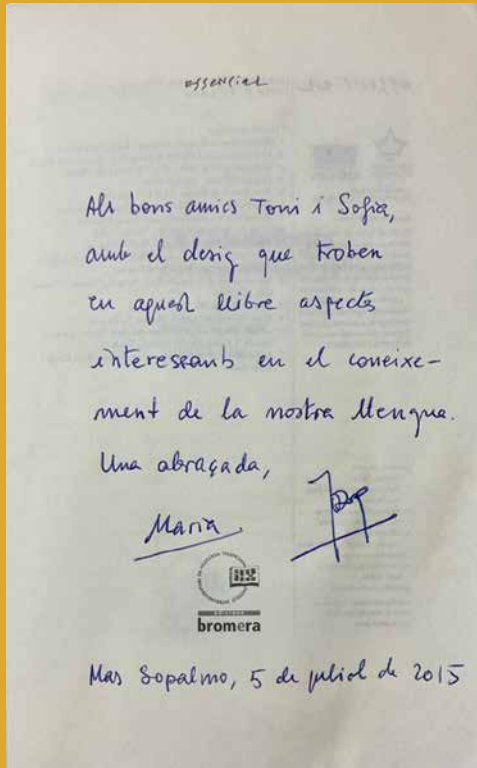 essencial
Als bons amics Toni i Sofia,
amb el desig que troben
en aquest llibre aspectes
interessants en el coneixe-
ment de la nostra llengua.
Una abraçada,
Maria
edicions
bromera
Mas Sopalmo, 5 de juliol de 2015